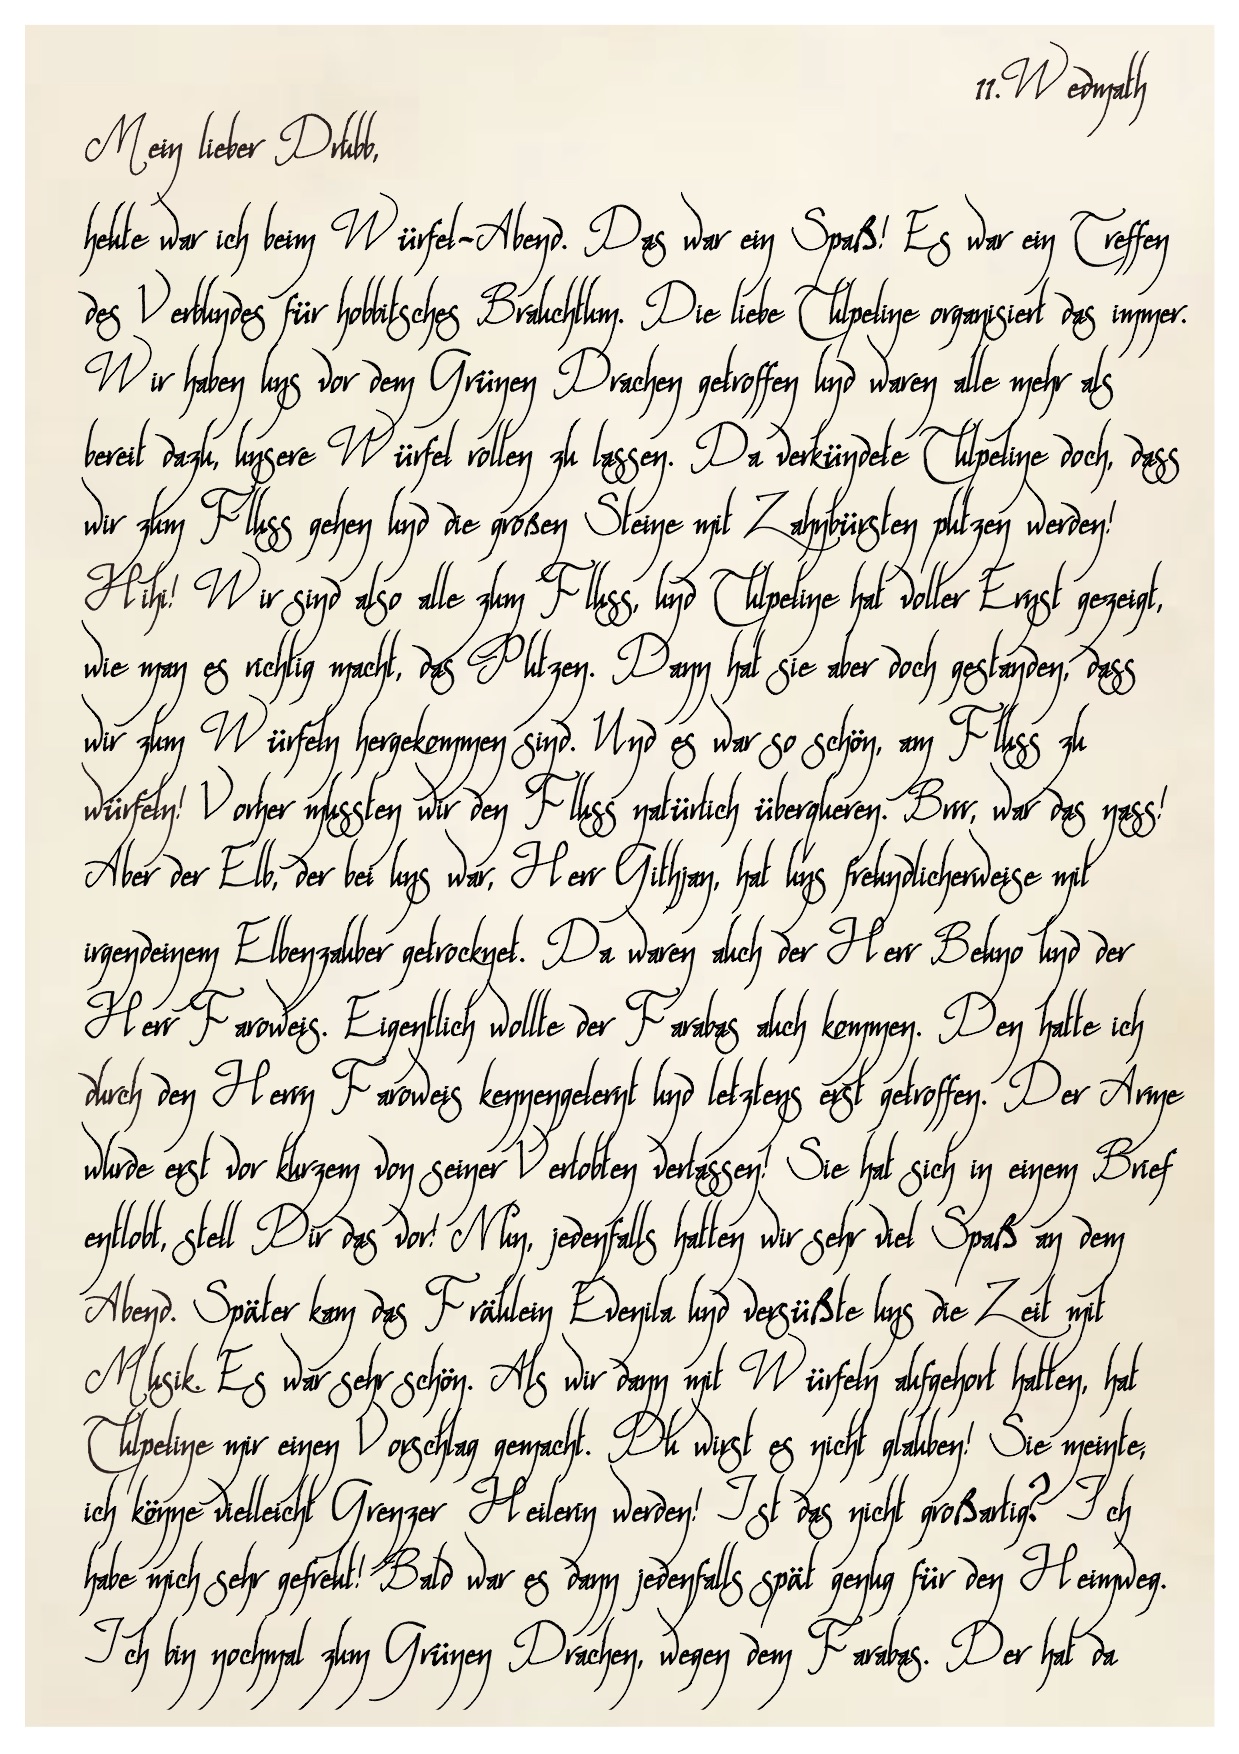 11. Wedmath
Mein lieber Drubb,
heute war ich beim Würfel-Abend. Das war ein Spaß! Es war ein Treffen
des Verbundes für hobbitsches Brauchtum. Die liebe Tulpeline organisiert das immer.
Wir haben uns vor dem Grünen Drachen getroffen und waren alle mehr als
bereit dazu, unsere Würfel rollen zu lassen. Da verkündete Tulpeline doch, dass
wir zum Fluss gehen und die großen Steine mit Zahnbürsten putzen werden!
Hihi! Wir sind also alle zum Fluss, und Tulpeline hat voller Ernst gezeigt,
wie man es richtig macht, das Putzen. Dann hat sie aber doch gestanden, dass
wir zum Würfeln hergekommen sind. Und es war so schön, am Fluss zu
würfeln! Vorher mussten wir den Fluss natürlich überqueren. Brrr, war das nass!
Aber der Elb, der bei uns war, Herr Githjan, hat uns freundlicherweise mit
irgendeinem Elbenzauber getrocknet. Da waren auch der Herr Beuno und der
Herr Faroweis. Eigentlich wollte der Farabas auch kommen. Den hatte ich
durch den Herrn Faroweis kennengelernt und letztens erst getroffen. Der Arme
wurde erst vor kurzem von seiner Verlobten verlassen! Sie hat sich in einem Brief
entlobt, stell Dir das vor! Nun, jedenfalls hatten wir sehr viel Spaß an dem
Abend. Später kam das Fräulein Evenila und versüßte uns die Zeit mit
Musik. Es war sehr schön. Als wir dann mit Würfeln aufgehort hatten, hat
Tulpeline mir einen Vorschlag gemacht. Du wirst es nicht glauben! Sie meinte,
ich könne vielleicht Grenzer Heilerin werden! Ist das nicht großartig? Ich
habe mich sehr gefreut! Bald war es dann jedenfalls spät genug für den Heimweg.
Ich bin nochmal zum Grünen Drachen, wegen dem Farabas. Der hat da